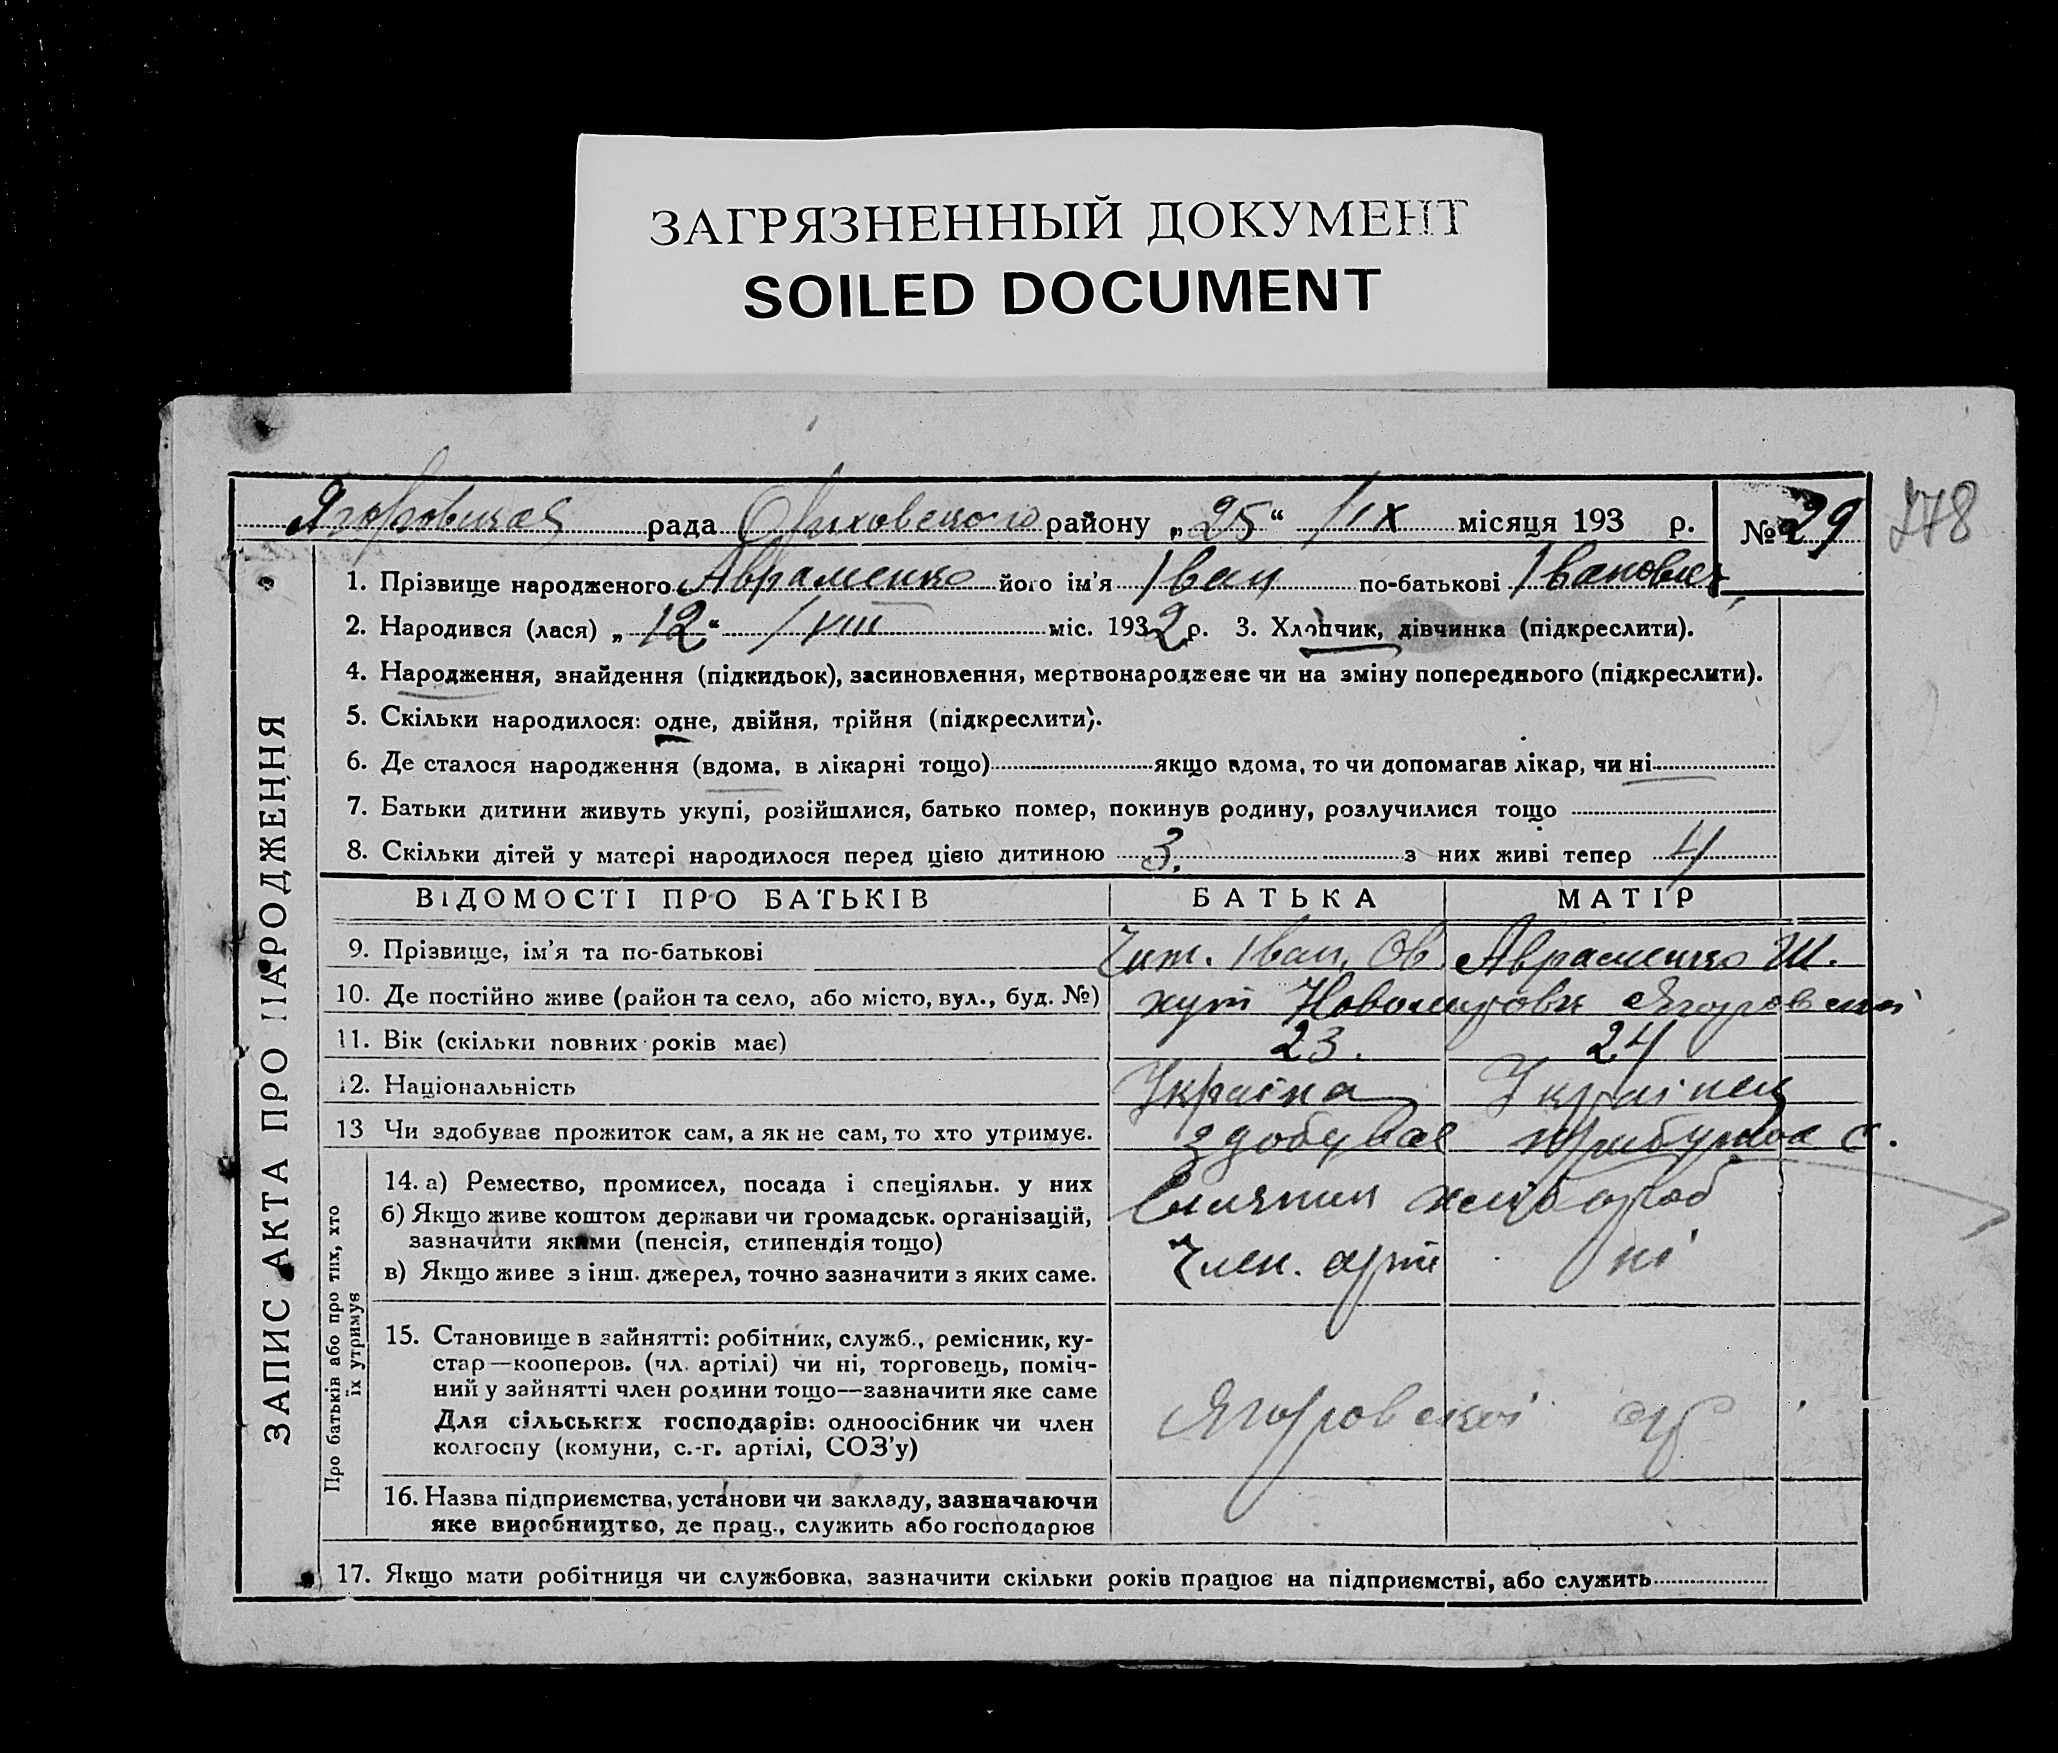 ЗАГРЯЗНЕННЫЙ ДОКУМЕНТ
SOILED DOCUMENT
278
рада Оріховського району „25“ /IX місяця 193 р. № 29
ЗАПИС АКТА ПРО НАРОДЖЕННЯ
1. Прізвище народженого Авраменко його ім'я Іван по-батькові Іванович
2. Народився (лася) „12“ /VIII міс. 1932 р. 3. Хлопчик, дівчинка (підкреслити).
4. Народження, знайдення (підкидьок), засиновлення, мертвонароджене чи на зміну попереднього (підкреслити).
5. Скільки народилося: одне, двійня, трійня (підкреслити).
6. Де сталося народження (вдома, в лікарні тощо) якщо вдома, то чи допомагав лікар, чи ні
7. Батьки дитини живуть укупі, розійшлися, батько помер, покинув родину, розлучилися тощо
8. Скільки дітей у матері народилося перед цією дитиною 3. з них живі тепер 4
ВІДОМОСТІ ПРО БАТЬКІВ БАТЬКА МАТІР
9. Прізвище, ім'я та по-батькові Іван. Ов. Авраменко
10. Де постійно живе (район та село, або місто, вул., буд. №) хут
11. Вік (скільки повних років має) 23. 24
12. Національність Україна Українец
13 Чи здобуває прожиток сам, а як не сам, то хто утримує. здобував
Про батьків або про тих, хто
їх утримує
14. а) Ремество, промисел, посада і спеціяльн. у них хлібороб
б) Якщо живе коштом держави чи громадськ. організацій,
зазначити якими (пенсія, стипендія тощо)
в) Якщо живе з інш. джерел, точно зазначити з яких саме. Член. арті ні
15. Становище в зайнятті: робітник, служб., ремісник, ку-
стар—кооперов. (чл. артілі) чи ні, торговець, поміч-
ний у зайнятті член родини тощо—зазначити яке саме
Для сільських господарів: одноосібник чи член
колгоспу (комуни, с.-г. артілі, СОЗ'у)
16. Назва підприємства, установи чи закладу, зазначаючи
яке виробництво, де прац., служить або господарює
17. Якщо мати робітниця чи службовка, зазначити скільки років працює на підприємстві, або служить